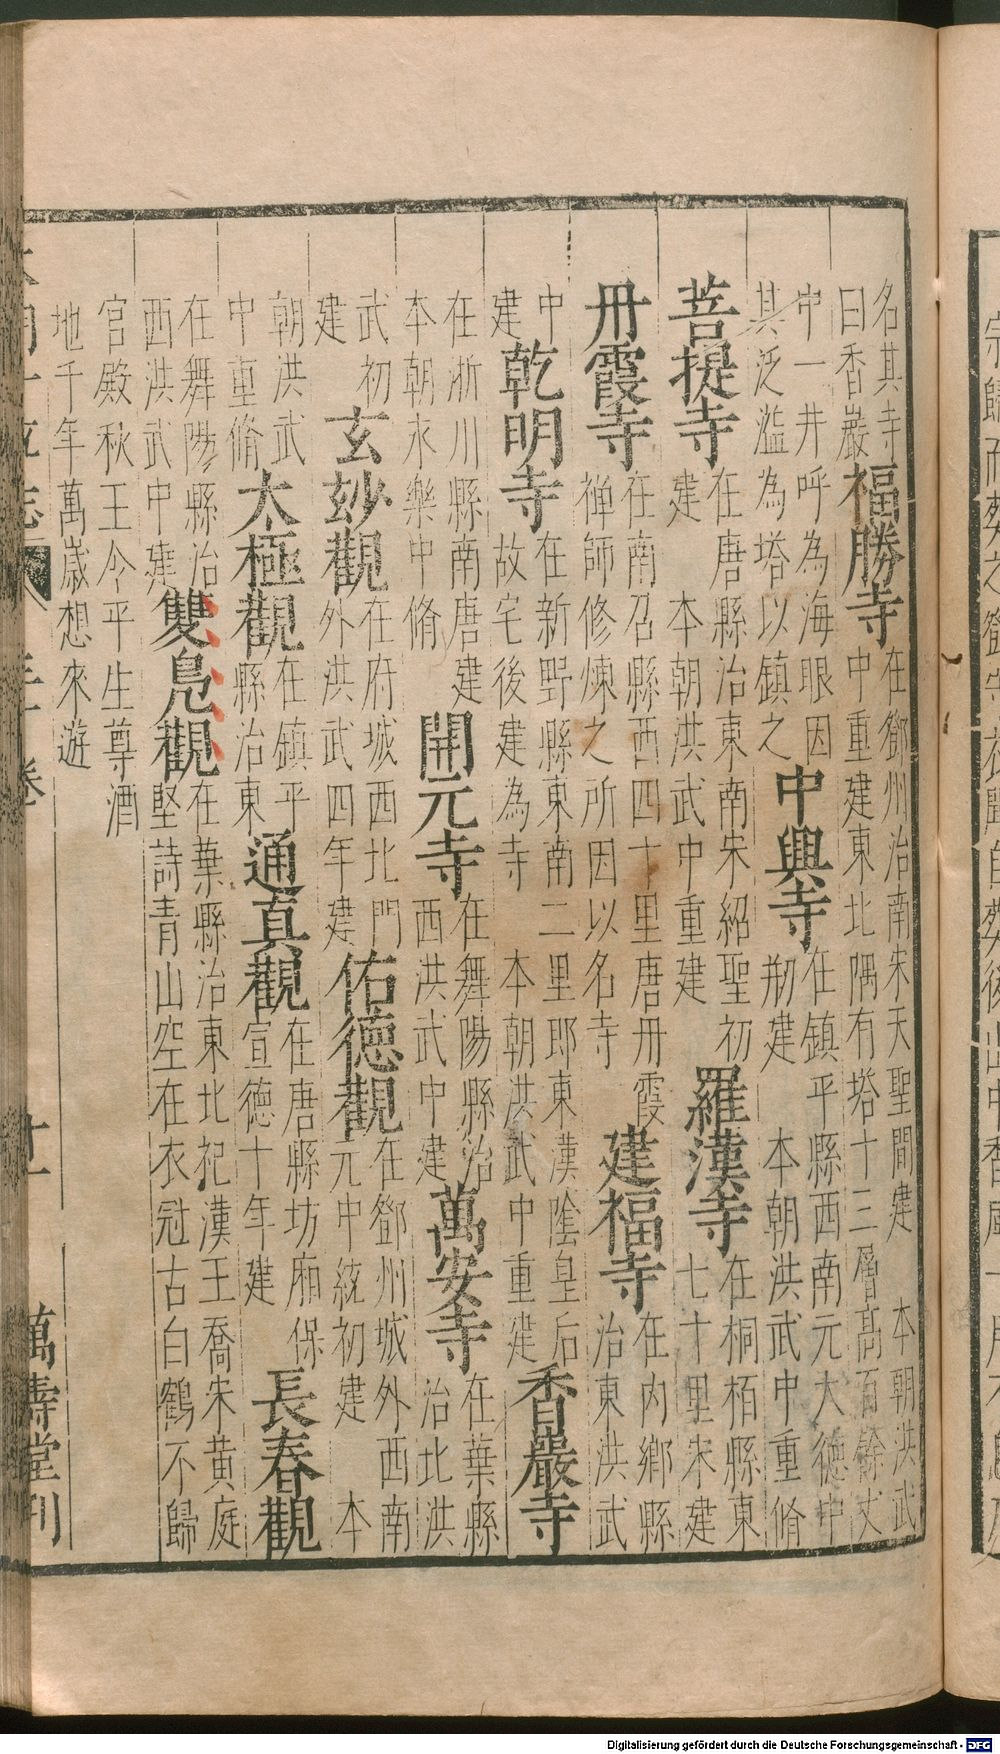 名其寺曰香嚴福勝寺在鄧州治南宋天聖間建 本朝洪武中重建東北隅有塔十三層高百餘丈
中一井呼為海眼因其泛濫為塔以鎮之中興寺在鎮平縣西南元大德中剏建 本朝洪武中重脩
菩提寺在唐縣治東南宋紹聖初建 本朝洪武中重建羅漢寺在桐栢縣東七十里宋建
丹霞寺在南召縣西四十里唐丹霞禅師修煉之所因以名寺建福寺在内鄉縣治東洪武
中建乾明寺在新野縣東南二里郎東漢隂皇后故宅後建為寺 本朝洪武中重建香嚴寺
在淅川縣南唐建本朝永樂中脩開元寺在舞陽縣治西洪武中建萬安寺在葉縣治北洪
武初建玄玅觀在府城西北門外洪武四年建佑德觀在鄧州城外西南元中統初建 本
朝洪武中重脩太極觀在鎮平縣治東通真觀在唐縣坊廂保宣德十年建長春觀
在舞陽縣治西洪武中建雙鳧觀在葉縣治東北祀漢王喬宋黃庭堅詩青山空在衣冠古白鶴不歸
宮殿秋王令平生尊酒地千年萬歲想來遊
萬壽堂刊
Digitalisierung gefördert durch die Deutsche Forschungsgemeinschaft - DFG